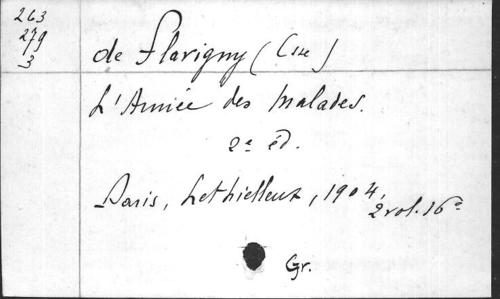 263
279
3
de Flavigny (Csse)
L'Année des Malades.
2e éd.
Paris, Lethielleux, 1904,
2 vol. 16°
Gr.